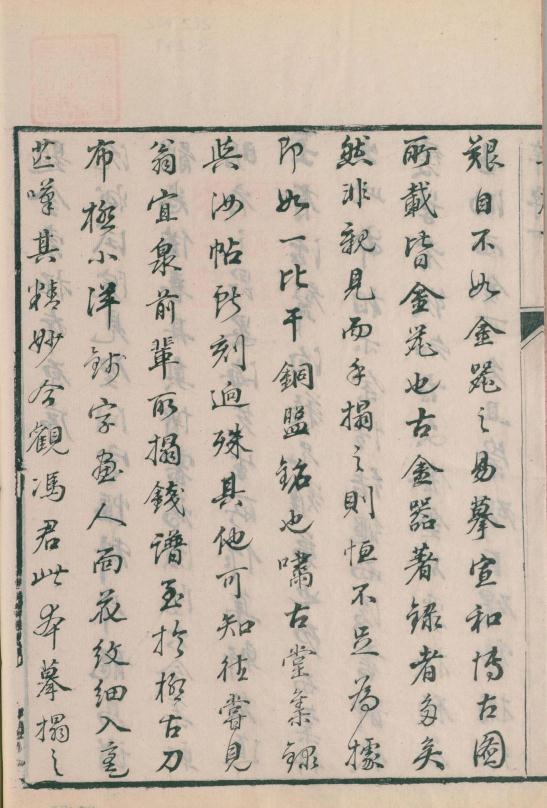 艱自不如金器之易摹宣和博古圖
所載皆金器也古金器著錄者多矣
然非親見而手搨之則恒不足為據
即如一比干銅盤銘也嘯古堂集錄
與汝帖所刻迥殊其他可知往嘗見
翁宜泉前輩所搨錢譜至於極古刀
布極小洋錢字畫人面花紋細入毫
芒嘆其精妙今觀馮君此本摹搨之